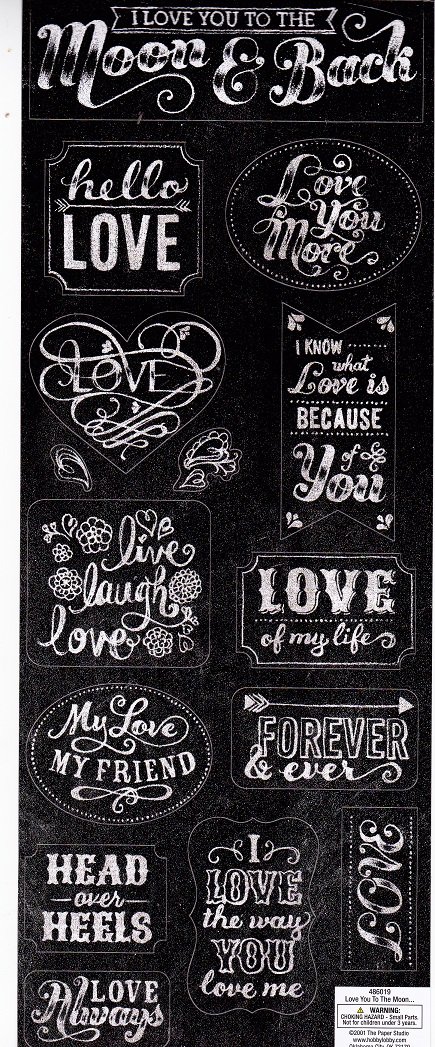 I LOVE YOU TO THE
Moon & Back
hello
LOVE
Love
You
More
LOVE
I KNOW
what
Love is
BECAUSE
of
You
live
laugh
love
LOVE
of my life
My Love
MY FRIEND
FOREVER
& ever
HEAD
over
HEELS
I
LOVE
the way
YOU
love me
LOVE
LOVE
Always
486019
Love You To The Moon...
WARNING:
CHOKING HAZARD - Small Parts.
Not for children under 3 years.
©2001 The Paper Studio
www.hobbylobby.com
Oklahoma City, OK 73179